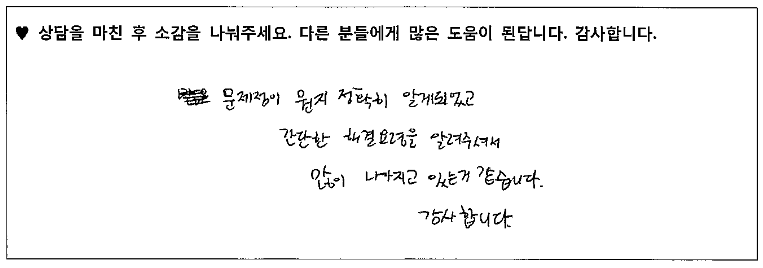 ♥ 상담을 마친 후 소감을 나눠주세요. 다른 분들에게 많은 도움이 된답니다. 감사합니다.
문제점이 뭔지 정확히 알게되었고
간단한 해결요령을 알려주셔서
많이 나아지고 있는거 같습니다.
감사합니다.